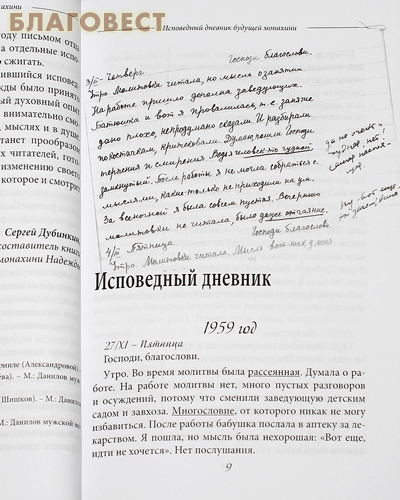 БЛАГОВЕСТ
нахини
году письмом отца
а отдельные испо-
о сжигать.
ившийся исповед-
жды было принято
й духовный опыт
внимательно смо-
, мыслях и в душе
танет прообразом
х читателей, гото-
изменению своего
которое и смотрит
Сергей Дубинкин,
составитель книги
монахини Надежды
ириле (Александровой)
ёва). – М.: Данилов
мужской мо-
(Шишков). – М.: Да-
М.: Данилов муж-
Исповедный дневник будущей монахини
Господи благослови.
3/III – Четверг.
Утро. Молитовки читала, но мысль о занятии.
На работе пришло полно заведующих.
Батюшка и вот я провалилась, т.е. занятие
дано плохо, непродуманно сказали. И разбирали
по косточкам, критиковали. Думаю, пошли Господи
терпения и смирения. Ведь я человек-то чудной,
замкнутый. После работы я не могла собраться с
мыслями, какие только не приходили на ум.
За всенощной я была совсем пустая. Вечерние
молитовки не читала, было даже отчаяние.
Господи благослови.
4/III Пятница
Утро. Молитовки читала. Мысль вот-так у меня
Исповедный дневник
1959 год
27/XI – Пятница
Господи, благослови.
Утро. Во время молитвы была рассеянная. Думала о ра-
боте. На работе молитвы нет, много пустых разговоров
и осуждений, потому что сменили заведующую детским
садом и завхоза. Многословие, от которого никак не могу
избавиться. После работы бабушка послала в аптеку за ле-
карством. Я пошла, но мысль была нехорошая: «Вот еще,
идти не хочется». Нет послушания.
9